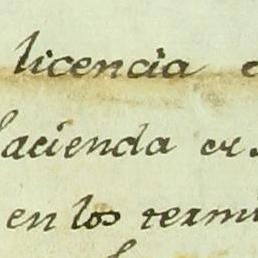 licencia
hacienda en
en los termi